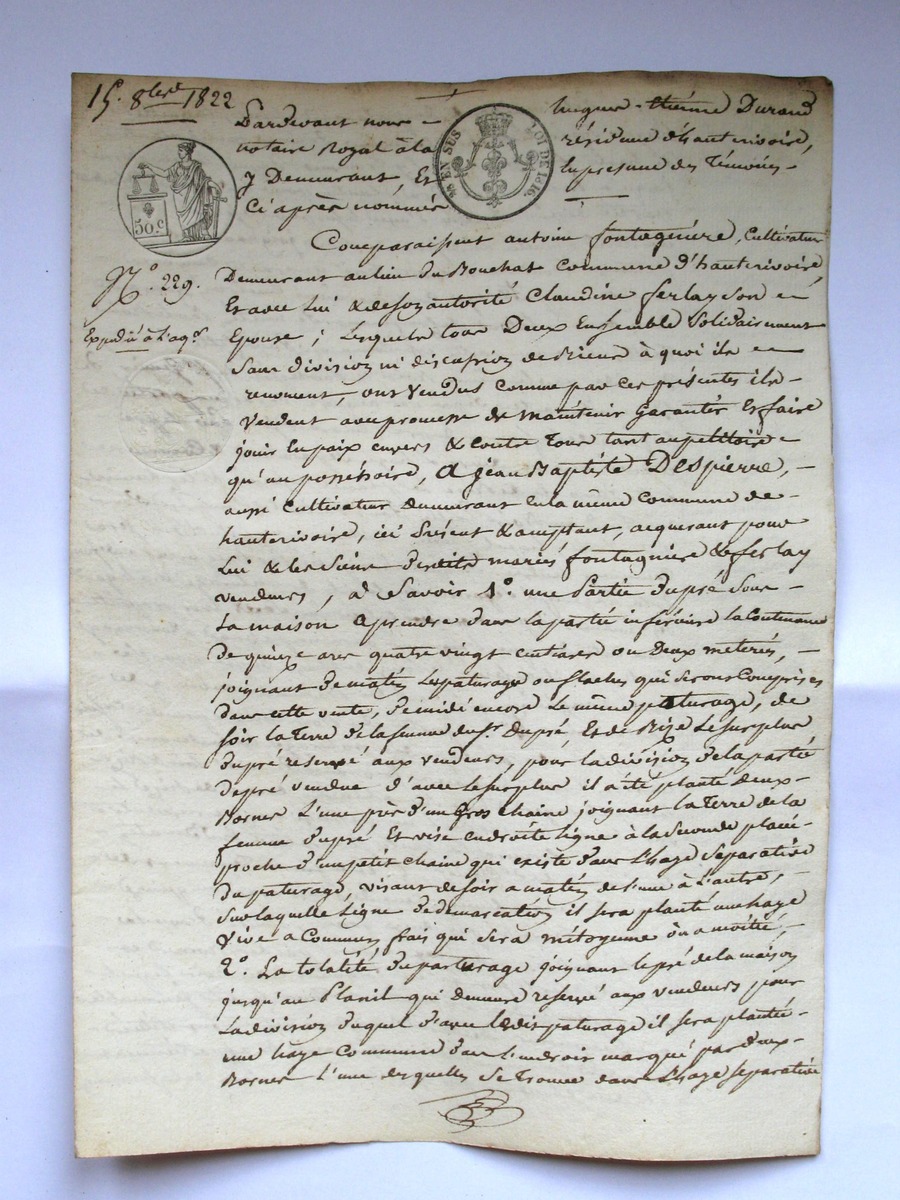 15. 8bre 1822
Pardevant nous = hugues-étienne Durand
notaire Royal à la résidence d'hauterivoire,
y Demeurant, Et en presence des Témoins -
Ci après nommés
EN SUS LOI DE 1816.
50 c
N.° 229.
Expedié à l'aqr
Comparaissent antoine fontagnere, Cultivateur
Demeurant au lieu du Bouchat Commune d'hauterivoire,
Et avec Lui & de son autorité Claudine ferlay son =
Epouse ; Lesquels tous Deux Ensemble Solidairement
Sans division ni discussion de Biens à quoi ils =
renoncent, ont Vendus Comme par ces présentes ils -
Vendent avec promesse de maintenir Garantir Et faire
jouir En paix envers & contre Tous tant au petitoire =
qu'au possessoire, A jean Baptiste DESpierre, -
aussi Cultivateur demeurant en la même Commune de -
hauterivoire, ici Présent & acceptant, acquerant pour
Lui & les Siens desdits mariés fontagnere & ferlay
vendeurs, à Savoir 1.° une Partie du pré Sous
La maison à prendre dans la partie inférieure la Contenance
De quinze ares quatre vingt centiares ou Deux meterés, -
joignant de matin Le paturage ou flaches qui Seront Compris en
dans cette vente, de midi encore Le même paturage, de
soir La Terre de la femme du Sr. Dupré, Et de Bize Le surplus
du pré reservé aux vendeurs, pour la division de la partie
de pré vendue d'avec Le surplus il a été planté deux -
Bornes L'une près d'un gros chaine joignant La Terre de la
femme Dupré Et vise en droite Ligne à la Seconde placée
proche d'un petit chaine qui existe dans L'haye Separative
du paturage, visant de soir a matin de l'une à L'autre, -
Sur laquelle Ligne de demarcation il sera planté une haye
Vive a Communs frais qui sera mitoyenne ou a moitié, -
2.° La totalité du paturage joignant le pré de la maison
jusqu'au Planil qui demeure reservé aux vendeurs pour
La division duquel d'avec Ledit paturage il sera planté -
une haye Commune dans L'endroit marqué par deux -
Bornes L'une desquelles Se Trouve dans L'haye Separative